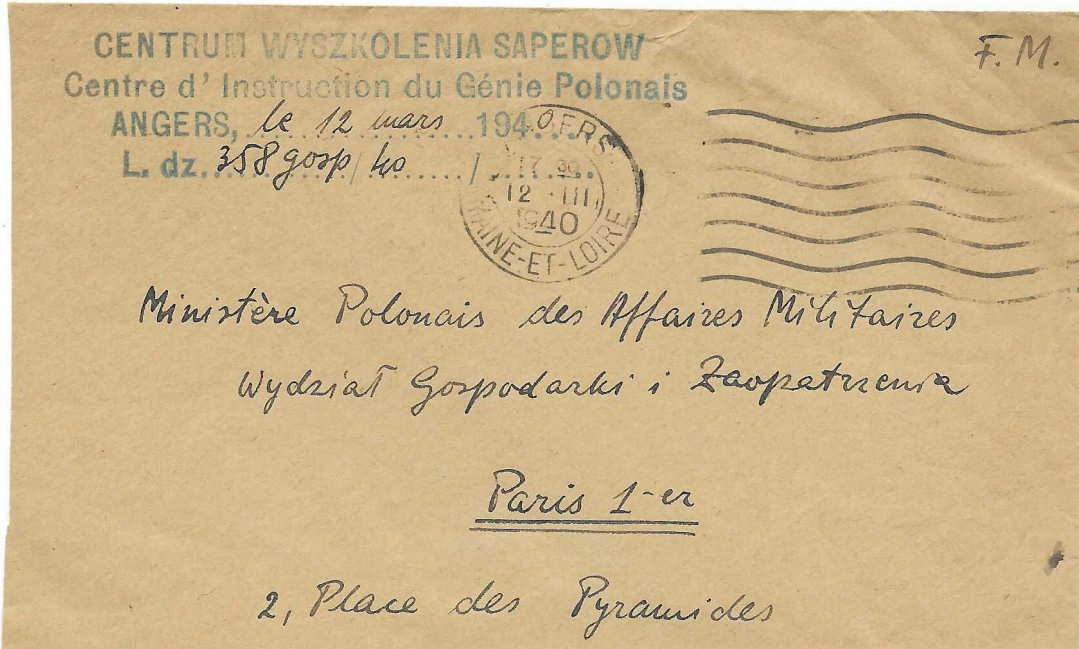 CENTRUM WYSZKOLENIA SAPEROW
F. M.
Centre d' Instruction du Génie Polonais
ANGERS, le 12 mars 194
L. dz. 358 gosp / 40 /
17 30
12 III
1940
MAINE-ET-LOIRE
Ministère Polonais des Affaires Militaires
Wydział Gospodarki i Zaopatrzenia
Paris 1-er
2, Place des Pyramides